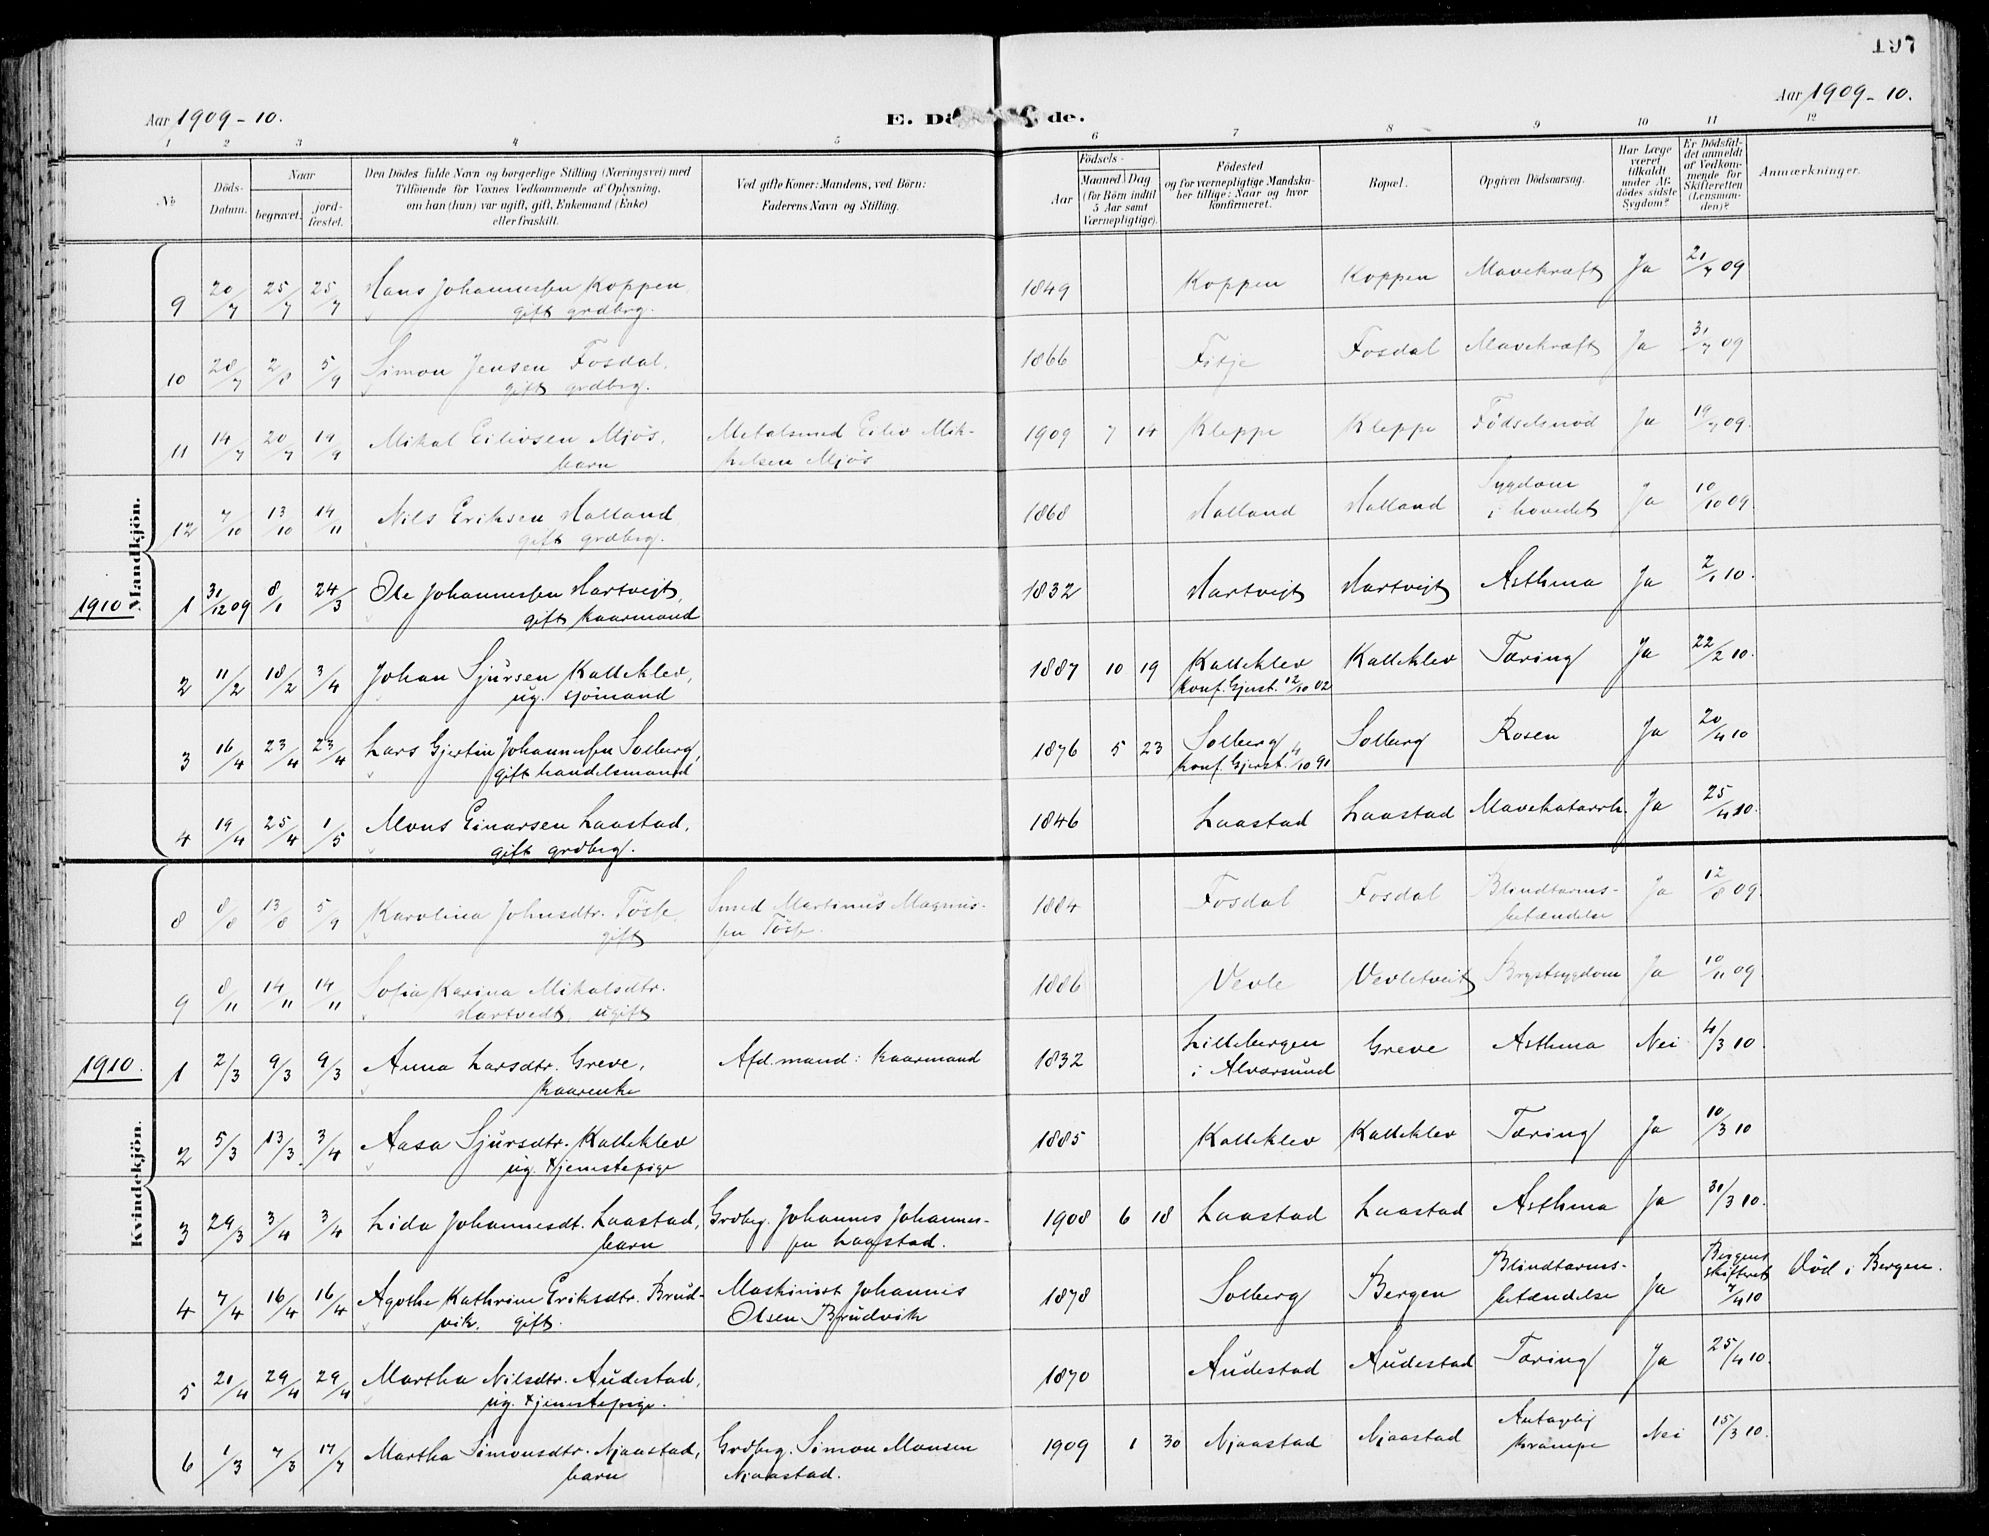 197
Aar 1909-10.
E. Dö de.
Aar 1909-10.
1 2 3 4 5 6 7 8 9 10 11 12
No
Döds-Datum.
Naar
begravet.
jord-fæstet.
Den Dödes fulde Navn og borgerlige Stilling (Næringsvei) med
Tilföiende for Voxnes Vedkommende af Oplysning,
om han (hun) var ugift, gift, Enkemand (Enke)
eller fraskilt.
Ved gifte Koner: Mandens, ved Börn:
Faderens Navn og Stilling.
Födsels-
Aar
Maaned Dag
(for Börn indtil
5 Aar samt
Værnepligtige).
Födested
og for værnepligtige Mandska-
ber tillige: Naar og hvor
konfirmeret.
Bopæl.
Opgiven Dödsaarsag.
Har Læge
været
tilkaldt
under Af-
dödes sidste
Sygdom?
Er Dödsfal-
det anmeldt
af Vedkom-
mende for
Skifteretten
(Lensman-
den)?
Anmærkninger.
Mandkjön.
9 20/7 25/7 25/7 Hans Johannessen Koppen, 1849 Koppen Koppen Mavekræft Ja 21/7 09
gift grdbrg.
10 28/7 2/8 5/9 Simon Jensen Fosdal, 1866 Fitje Fosdal Mavekræft Ja 31/7 09
gift grdbrg.
11 14/7 20/7 19/9 Mikal Eilivsen Mjös, Metalsmed Eiliv Mik- 1909 7 14 Kleppe Kleppe Födselsnöd Ja 19/7 09.
barn kelsen Mjös
12 7/10 13/10 14/11 Nils Eriksen Halland 1868 Halland Halland Sygdom i hovedet Ja 10/10 09
gift grdbrg.
1910
1 31/12 09 8/1 24/3 Ole Johannessen Hartveit, 1832 Hartveit Hartveit Asthma Ja 2/1 10.
gift kaarmand
2 11/2 18/2 3/4 Johan Sjursen Kalleklev, 1887 10 19 Kalleklev Kalleklev Tæring Ja 22/2 10.
ug. sjömand konf. Gjerst. 12/10 02
3 16/4 23/4 23/4 Lars Gjertin Johannessen Solberg, 1876 5 23 Solberg Solberg Rosen Ja 20/4 10
gift handelsmand konf. Gjerst. 4/10 91
4 19/4 25/4 1/5 Mons Einarsen Laastad, 1846 Laastad Laastad Mavekatarrh. Ja 25/4 10.
gift grdbrg.
Kvindekjön.
8 8/8 13/8 5/9 Karolina Johnsdtr. Tösse, Smed Martinus Magnus- 1884 Fosdal Fosdal Blindtarms- Ja 12/8 09.
gift sen Tösse. betændelse
9 8/11 14/11 14/11 Sofia Karina Mikalsdtr. 1886 Vevle Vevletveit Brystsygdom Ja 10/11 09
Hartvedt, ugift
1910.
1 2/3 9/3 9/3 Anna Larsdtr. Greve, Afd. mand: Kaarmand 1832 Lillebergen Greve Asthma Nei 4/3 10.
kaarenke i Alversund
2 5/3 13/3 3/4 Aasa Sjursdtr. Kalleklev 1885 Kalleklev Kalleklev Tæring Ja 10/3 10
ug. tjenestepige
3 29/3 3/4 3/4 Lida Johannesdt. Laastad, Grdbrg. Johannes Johannes- 1908 6 18 Laastad Laastad Asthma Ja 31/3 10.
barn sen Laastad.
4 7/4 16/4 16/4 Agothe Kathrine Eriksdtr. Brud- Maskinist Johannis 1878 Solberg Bergen Blindtarms- Ja Bergens skifteret 7/4 10 Död i Bergen.
vik, gift. Olsen Brudvik betændelse
5 20/4 29/4 29/4 Martha Nilsdtr. Audestad, 1870 Audestad Audestad Tæring Ja 25/4 10.
ug. tjenestepige.
6 1/3 7/3 17/7 Martha Simonsdtr. Njaastad, Grdbrg. Simon Monsen 1909 1 30 Njaastad Njaastad Antagelig Nei 15/3 10.
barn Njaastad. krampe